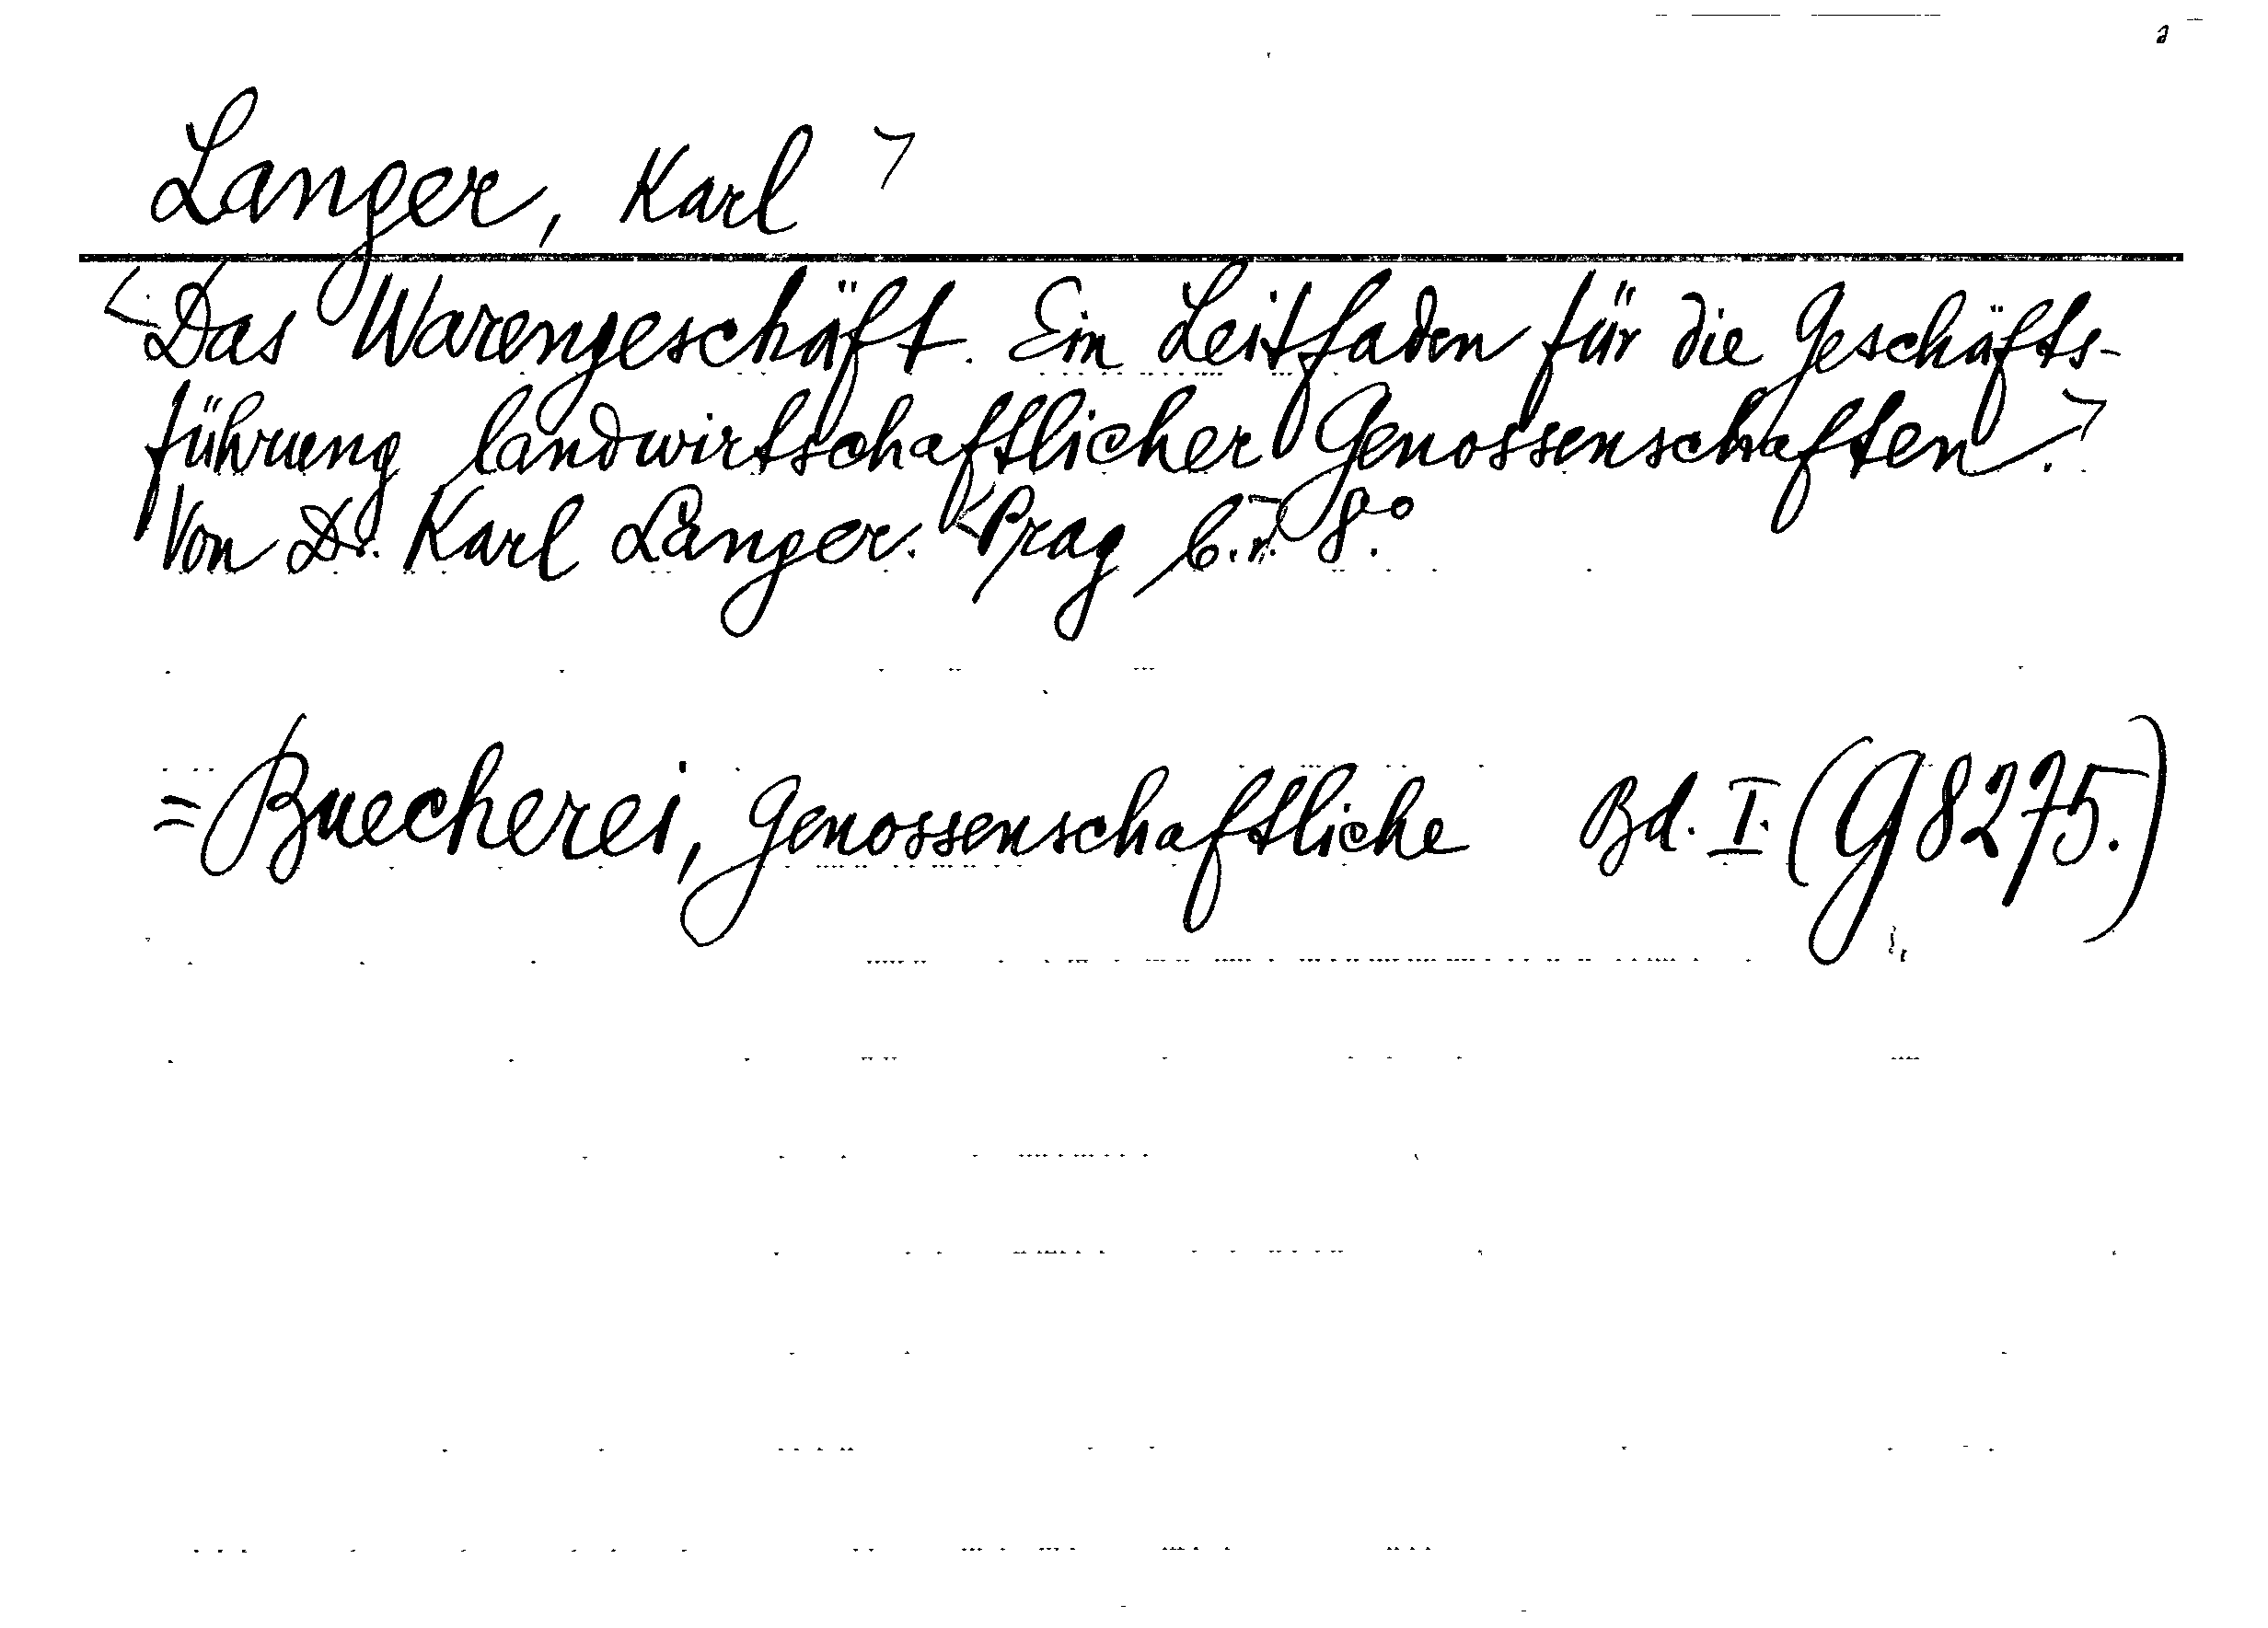 Langer, Karl
Das Warengeschäft. Ein Leitfaden für die Geschäfts-
führung landwirtschaftlicher Genossenschaften.
Von Dr. Karl Langer. Prag 8.°
= Buecherei, Genossenschaftliche Bd. I. (G 8275.)